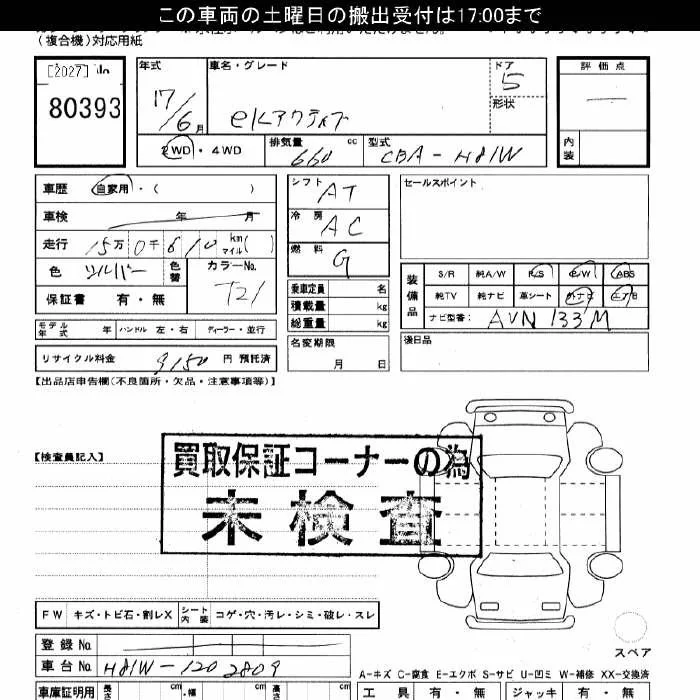 この車両の土曜日の搬出受付は17:00まで
(複合機)対応用紙
[2027] No
80393
年式 車名・グレード ドア 評価点
17/6月 eKアクティブ 5
形状
2WD・4WD 排気量 660 cc 型式 CBA-H81W 内装
車歴 自家用・( ) シフト AT セールスポイント
車検 年 月 冷房 AC
走行 15万0千610 km マイル( ) 燃料 G
色 シルバー 色替 カラーNo. T21
保証書 有・無
乗車定員 名
積載量 kg
総重量 kg
装備品 S/R 純A/W P/S P/W ABS
純TV 純ナビ 革シート 外ナビ ETC
ナビ型番: AVN 133M
モデル年式 年 ハンドル 左・右 ディーラー・並行
名変期限 月 日
後日品
リサイクル料金 9150 円 預託済
【出品店申告欄(不良箇所・欠品・注意事項等)】
【検査員記入】
買取保証コーナーの為
未検査
FW キズ・トビ石・割レX シート内装 コゲ・穴・汚レ・シミ・破レ・スレ
スペア
登録No.
車台No. H81W-1202809
A-キズ C-腐食 E-エクボ S-サビ U-凹ミ W-補修 XX-交換済
車庫証明用 長さ cm ・幅 cm 高さ cm 工具 有・無 ジャッキ 有・無